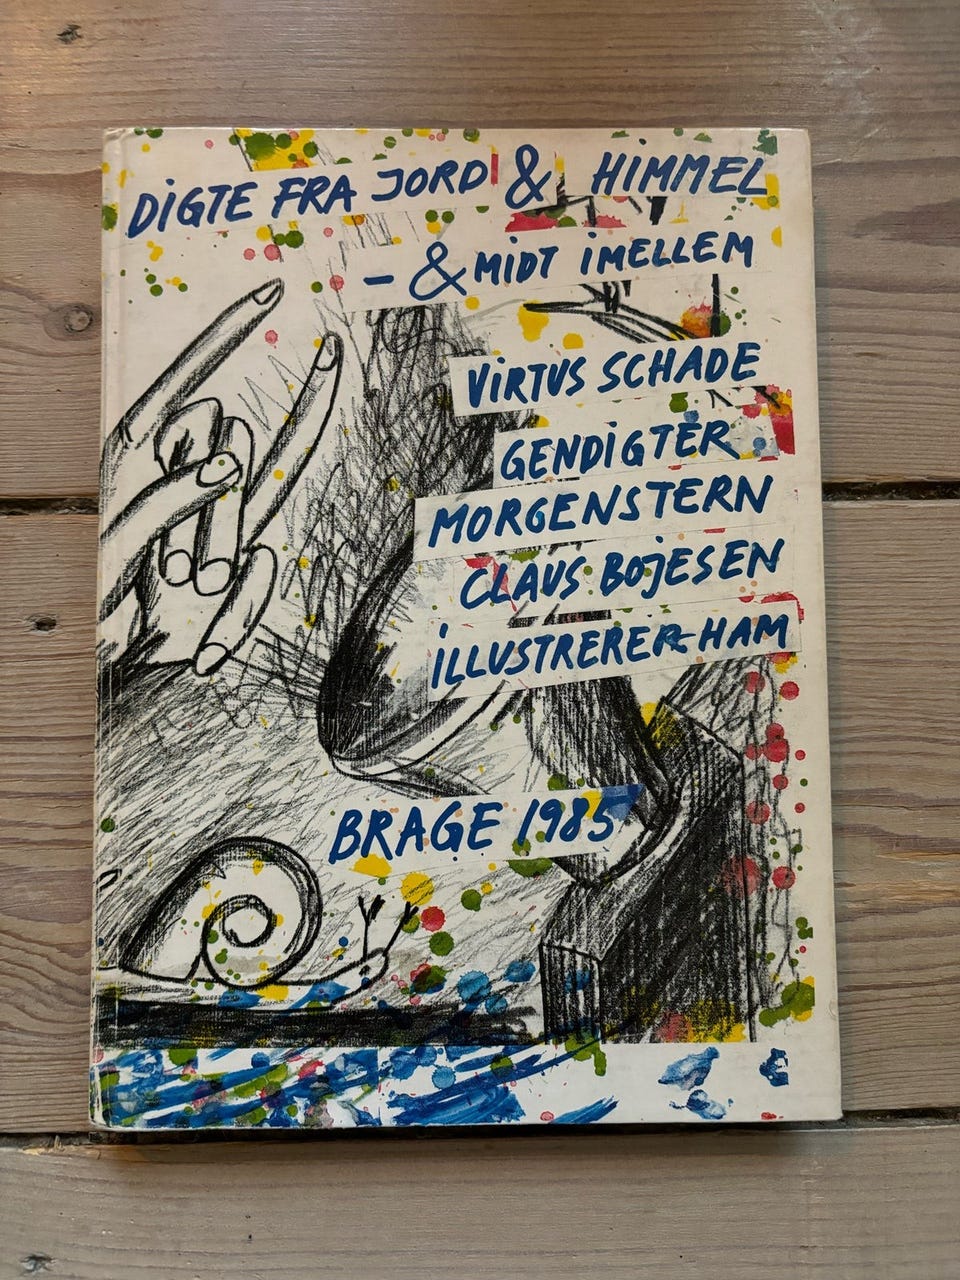 DIGTE FRA JORD & HIMMEL
- & MIDT IMELLEM
VIRTUS SCHADE
GENDIGTER
MORGENSTERN
CLAUS BOJESEN
ILLUSTRERER HAM
BRAGE 1985